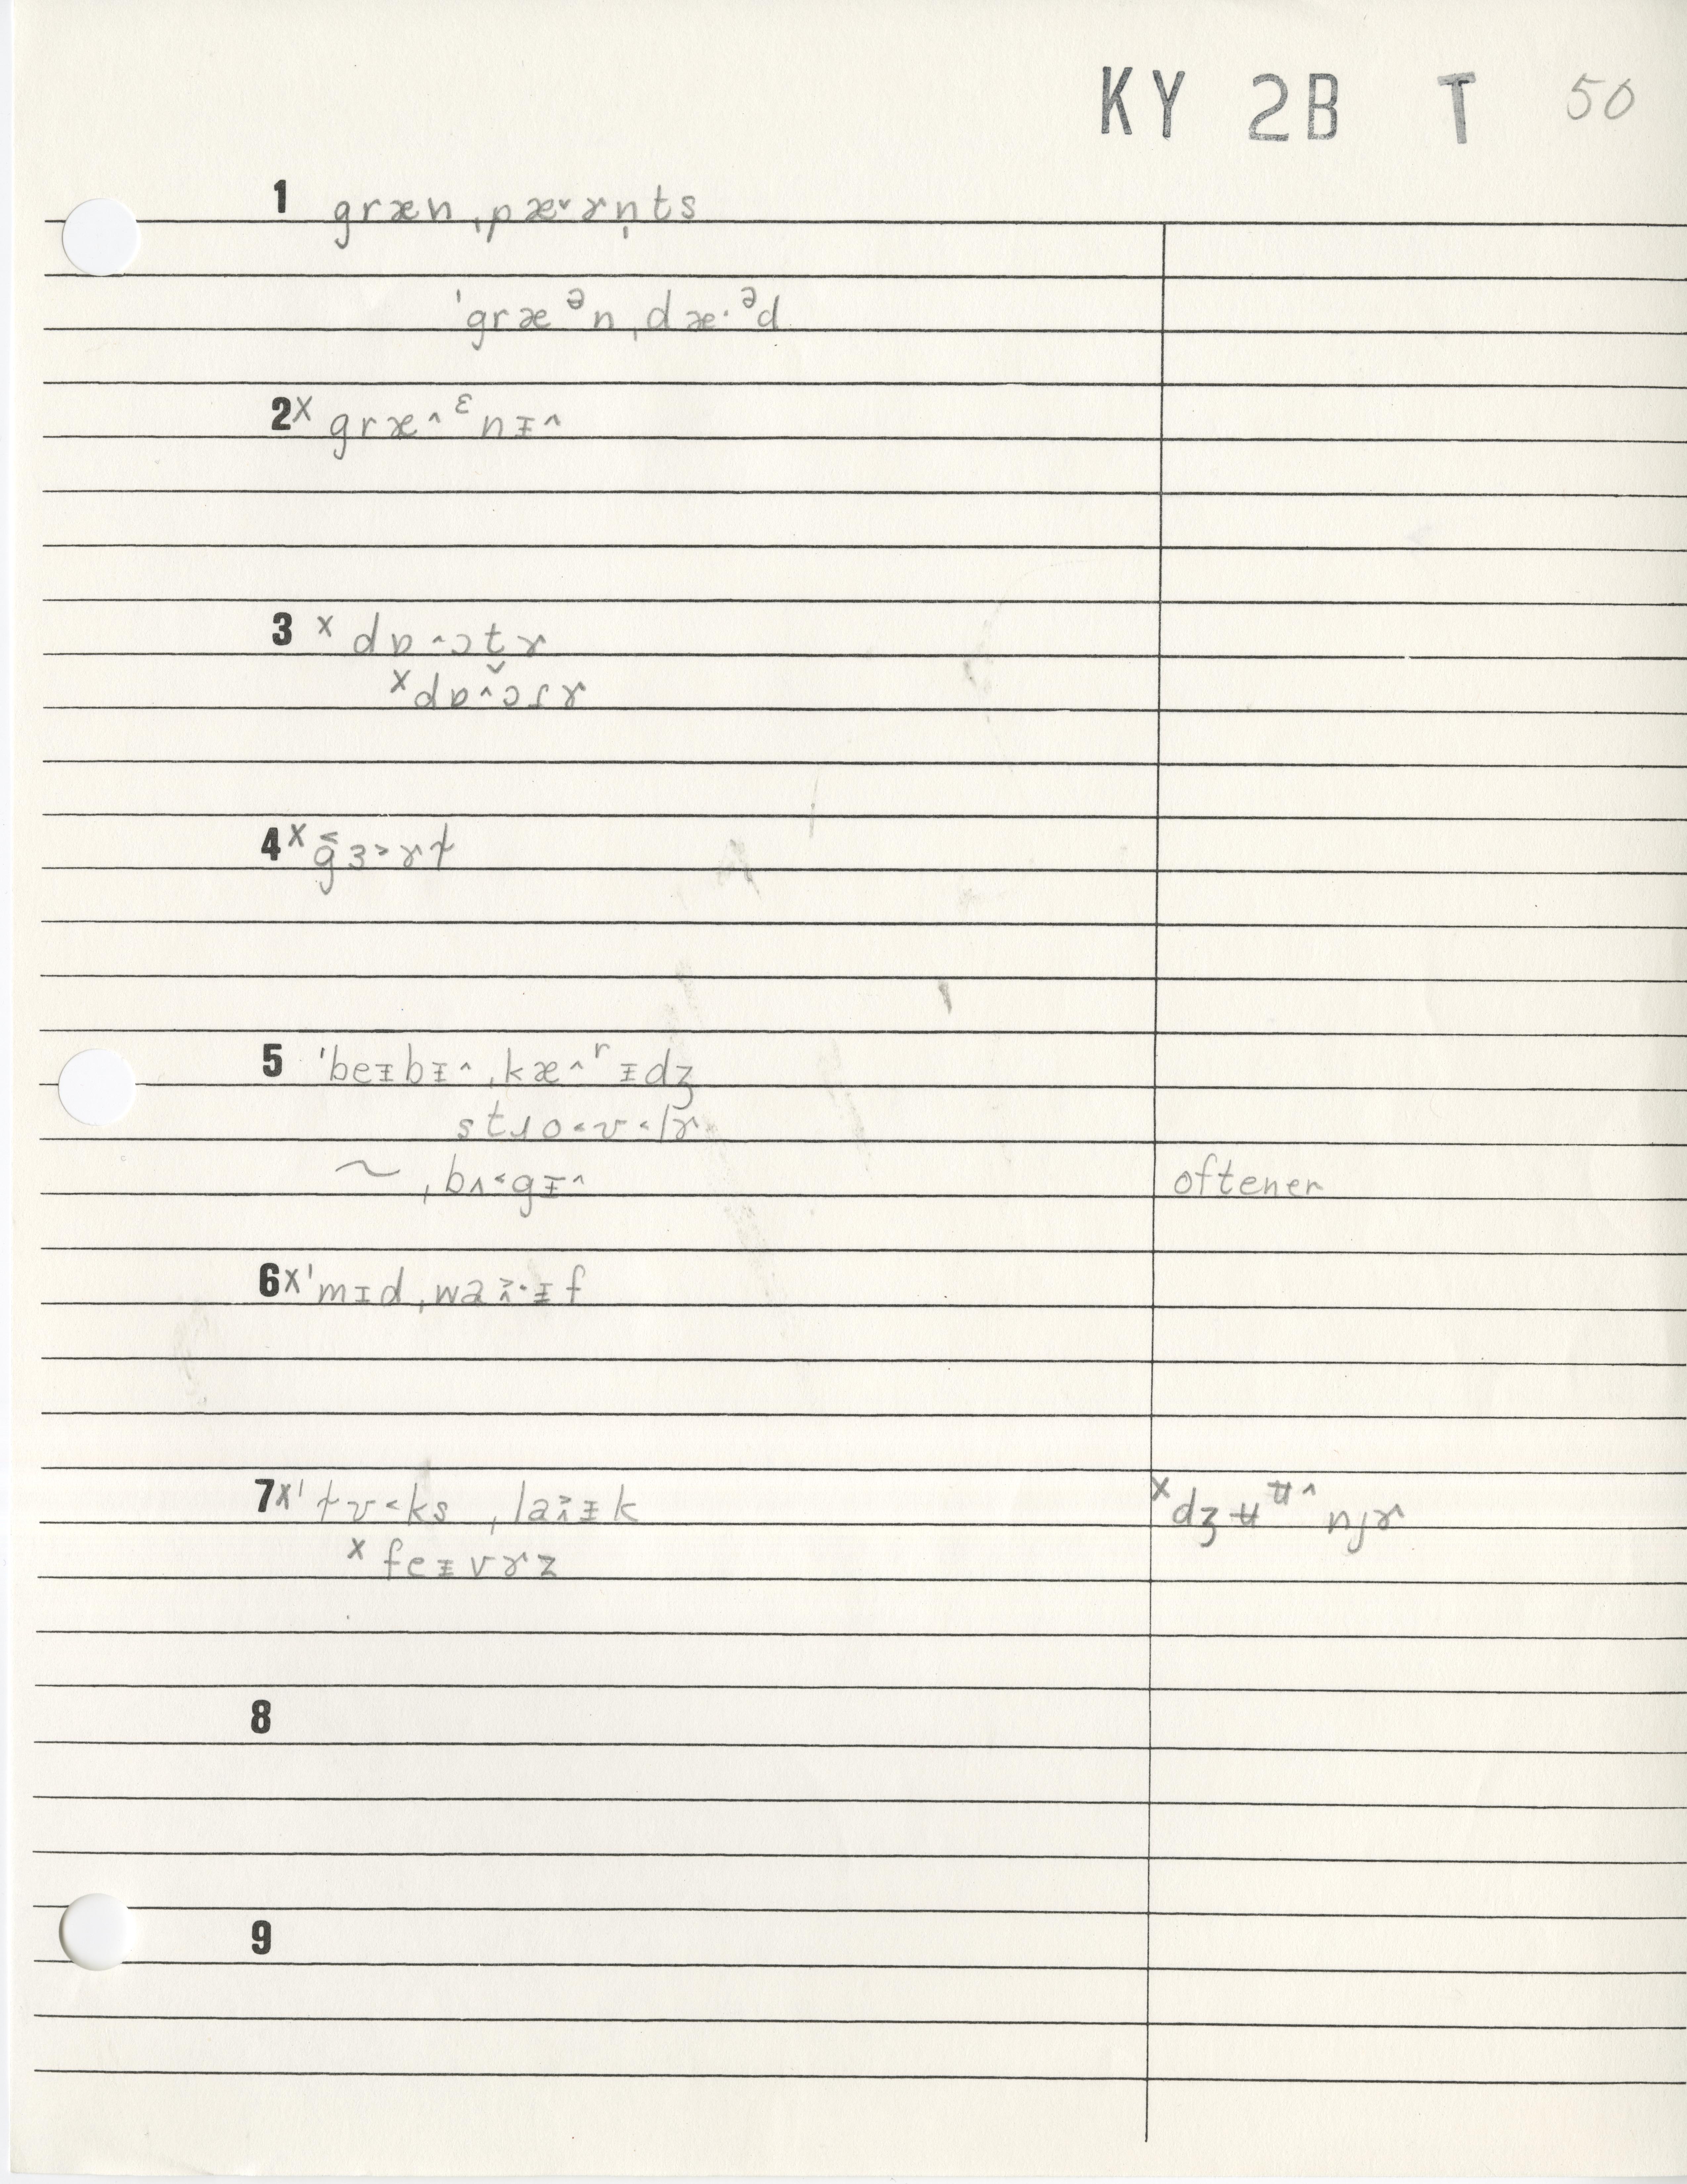 KY 2B T 50
1 græn ˌpæ˅ɤn̩ts
ˈgræᵊn ˌdæ·ᵊd
2 x græ^ᵋnɪ^
3 x dɒ^ɔtɤ
x dɒ^ɔɾɤ
4 x g̑ɜ>ɤɫ
5 ˈbeɪbɪ^ ˌkæ^ʳɪdʒ
stɹo<ʊ<lɤ
~ ˌbʌ<gɪ^ oftener
6 x ˈmɪd ˌwa>^·ɪf
7 x ˈɫʊ<ks ˌla>^ɪk x dʒʉᶶ^njɤ
x feɪvɤz
8
9